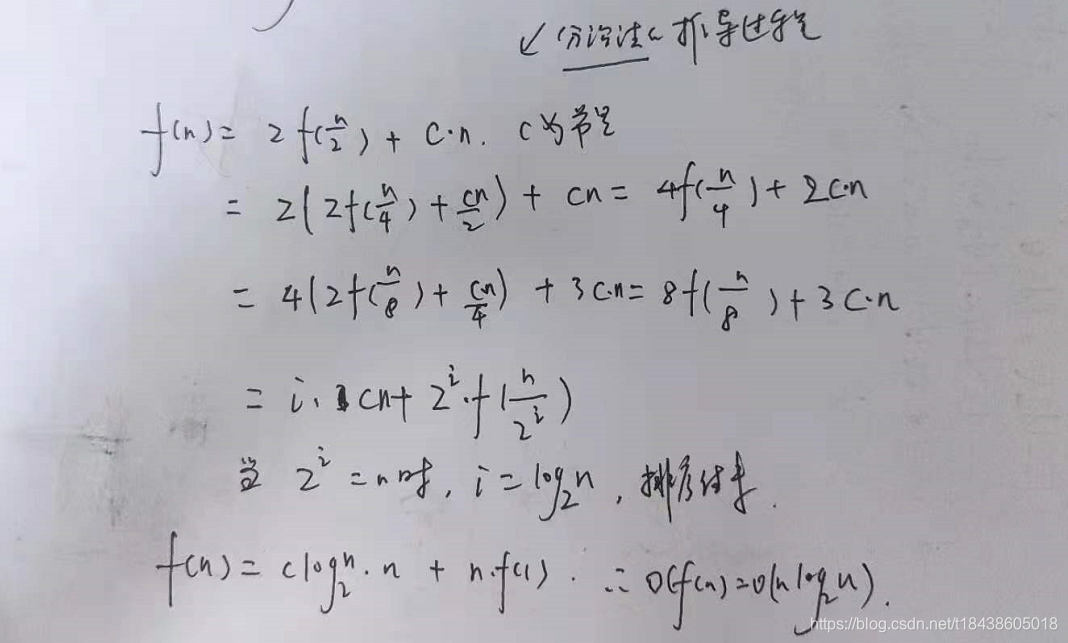 ↙ 分治法 推导过程
f(n) = 2f(n/2) + c·n. c为常量
= 2(2f(n/4) + cn/2) + cn = 4f(n/4) + 2c·n
= 4(2f(n/8) + c·n/4) + 3c·n = 8f(n/8) + 3c·n
= i· cn + 2^i · f(n/2^i)
当 2^i = n时, i = log₂n, 排序结束.
f(n) = c log₂n · n + n·f(1) . ∴ O(f(n)=O(n log₂n).
https://blog.csdn.net/t18438605018